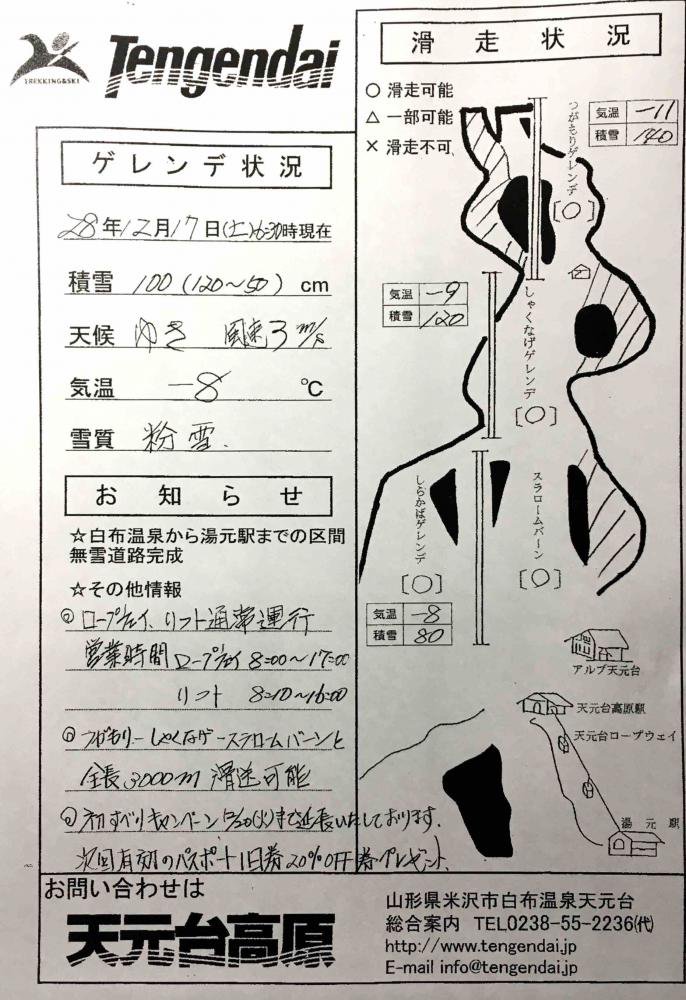 TREKKING&SKI
Tengendai
ゲレンデ状況
28年12月17日(土)6:30時現在
積雪 100(120～50) cm
天候 ゆき 風速3m/s
気温 -8 ℃
雪質 粉雪.
お知らせ
☆白布温泉から湯元駅までの区間
無雪道路完成
☆その他情報
◎ロープウェイ、リフト通常運行
営業時間 ロープウェイ 8:00～17:00
リフト 8:10～16:00
◎つがもりーしゃくなげースラロームバーンと
全長3000m 滑走可能
◎初すべりキャンペーン12/20(火)まで延長いたしております.
次回有効のパスポート1日券20%OFF券プレゼント.
滑走状況
○ 滑走可能
△ 一部可能
× 滑走不可
つがもりゲレンデ
[○]
気温 -11
積雪 140
しゃくなげゲレンデ
[○]
気温 -9
積雪 120
しらかばゲレンデ
[○]
スラロームバーン
[○]
気温 -8
積雪 80
アルブ天元台
天元台高原駅
天元台ロープウェイ
湯元駅
お問い合わせは
天元台高原
山形県米沢市白布温泉天元台
総合案内 TEL0238-55-2236(代)
http://www.tengendai.jp
E-mail info@tengendai.jp